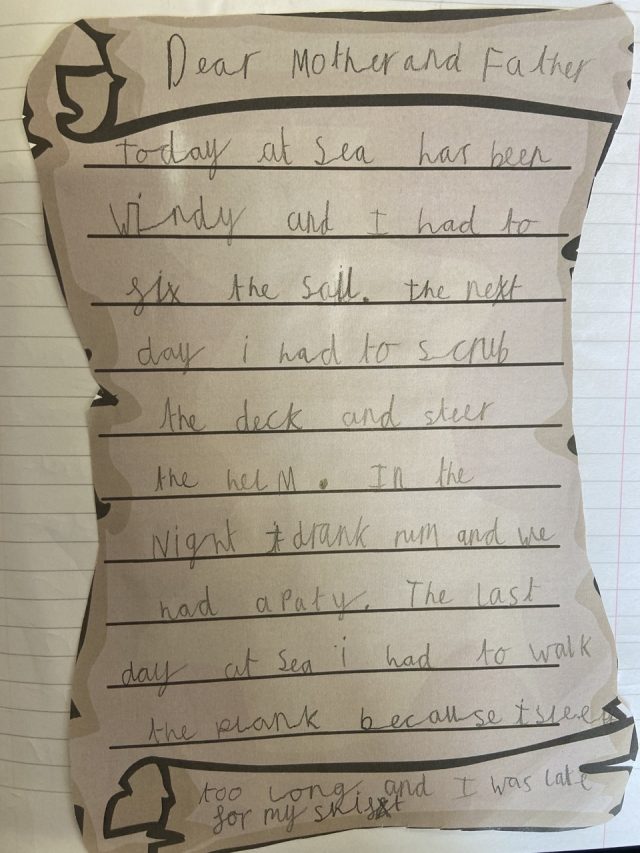 Dear Mother and Father
today at sea has been
Windy and I had to
six the sail. the next
day i had to scrub
the deck and steer
the helM. In the
Night I drank rum and we
had a Paty. The Last
day at Sea i had to walk
the plank because I sleep
too Long. and I was late
for my